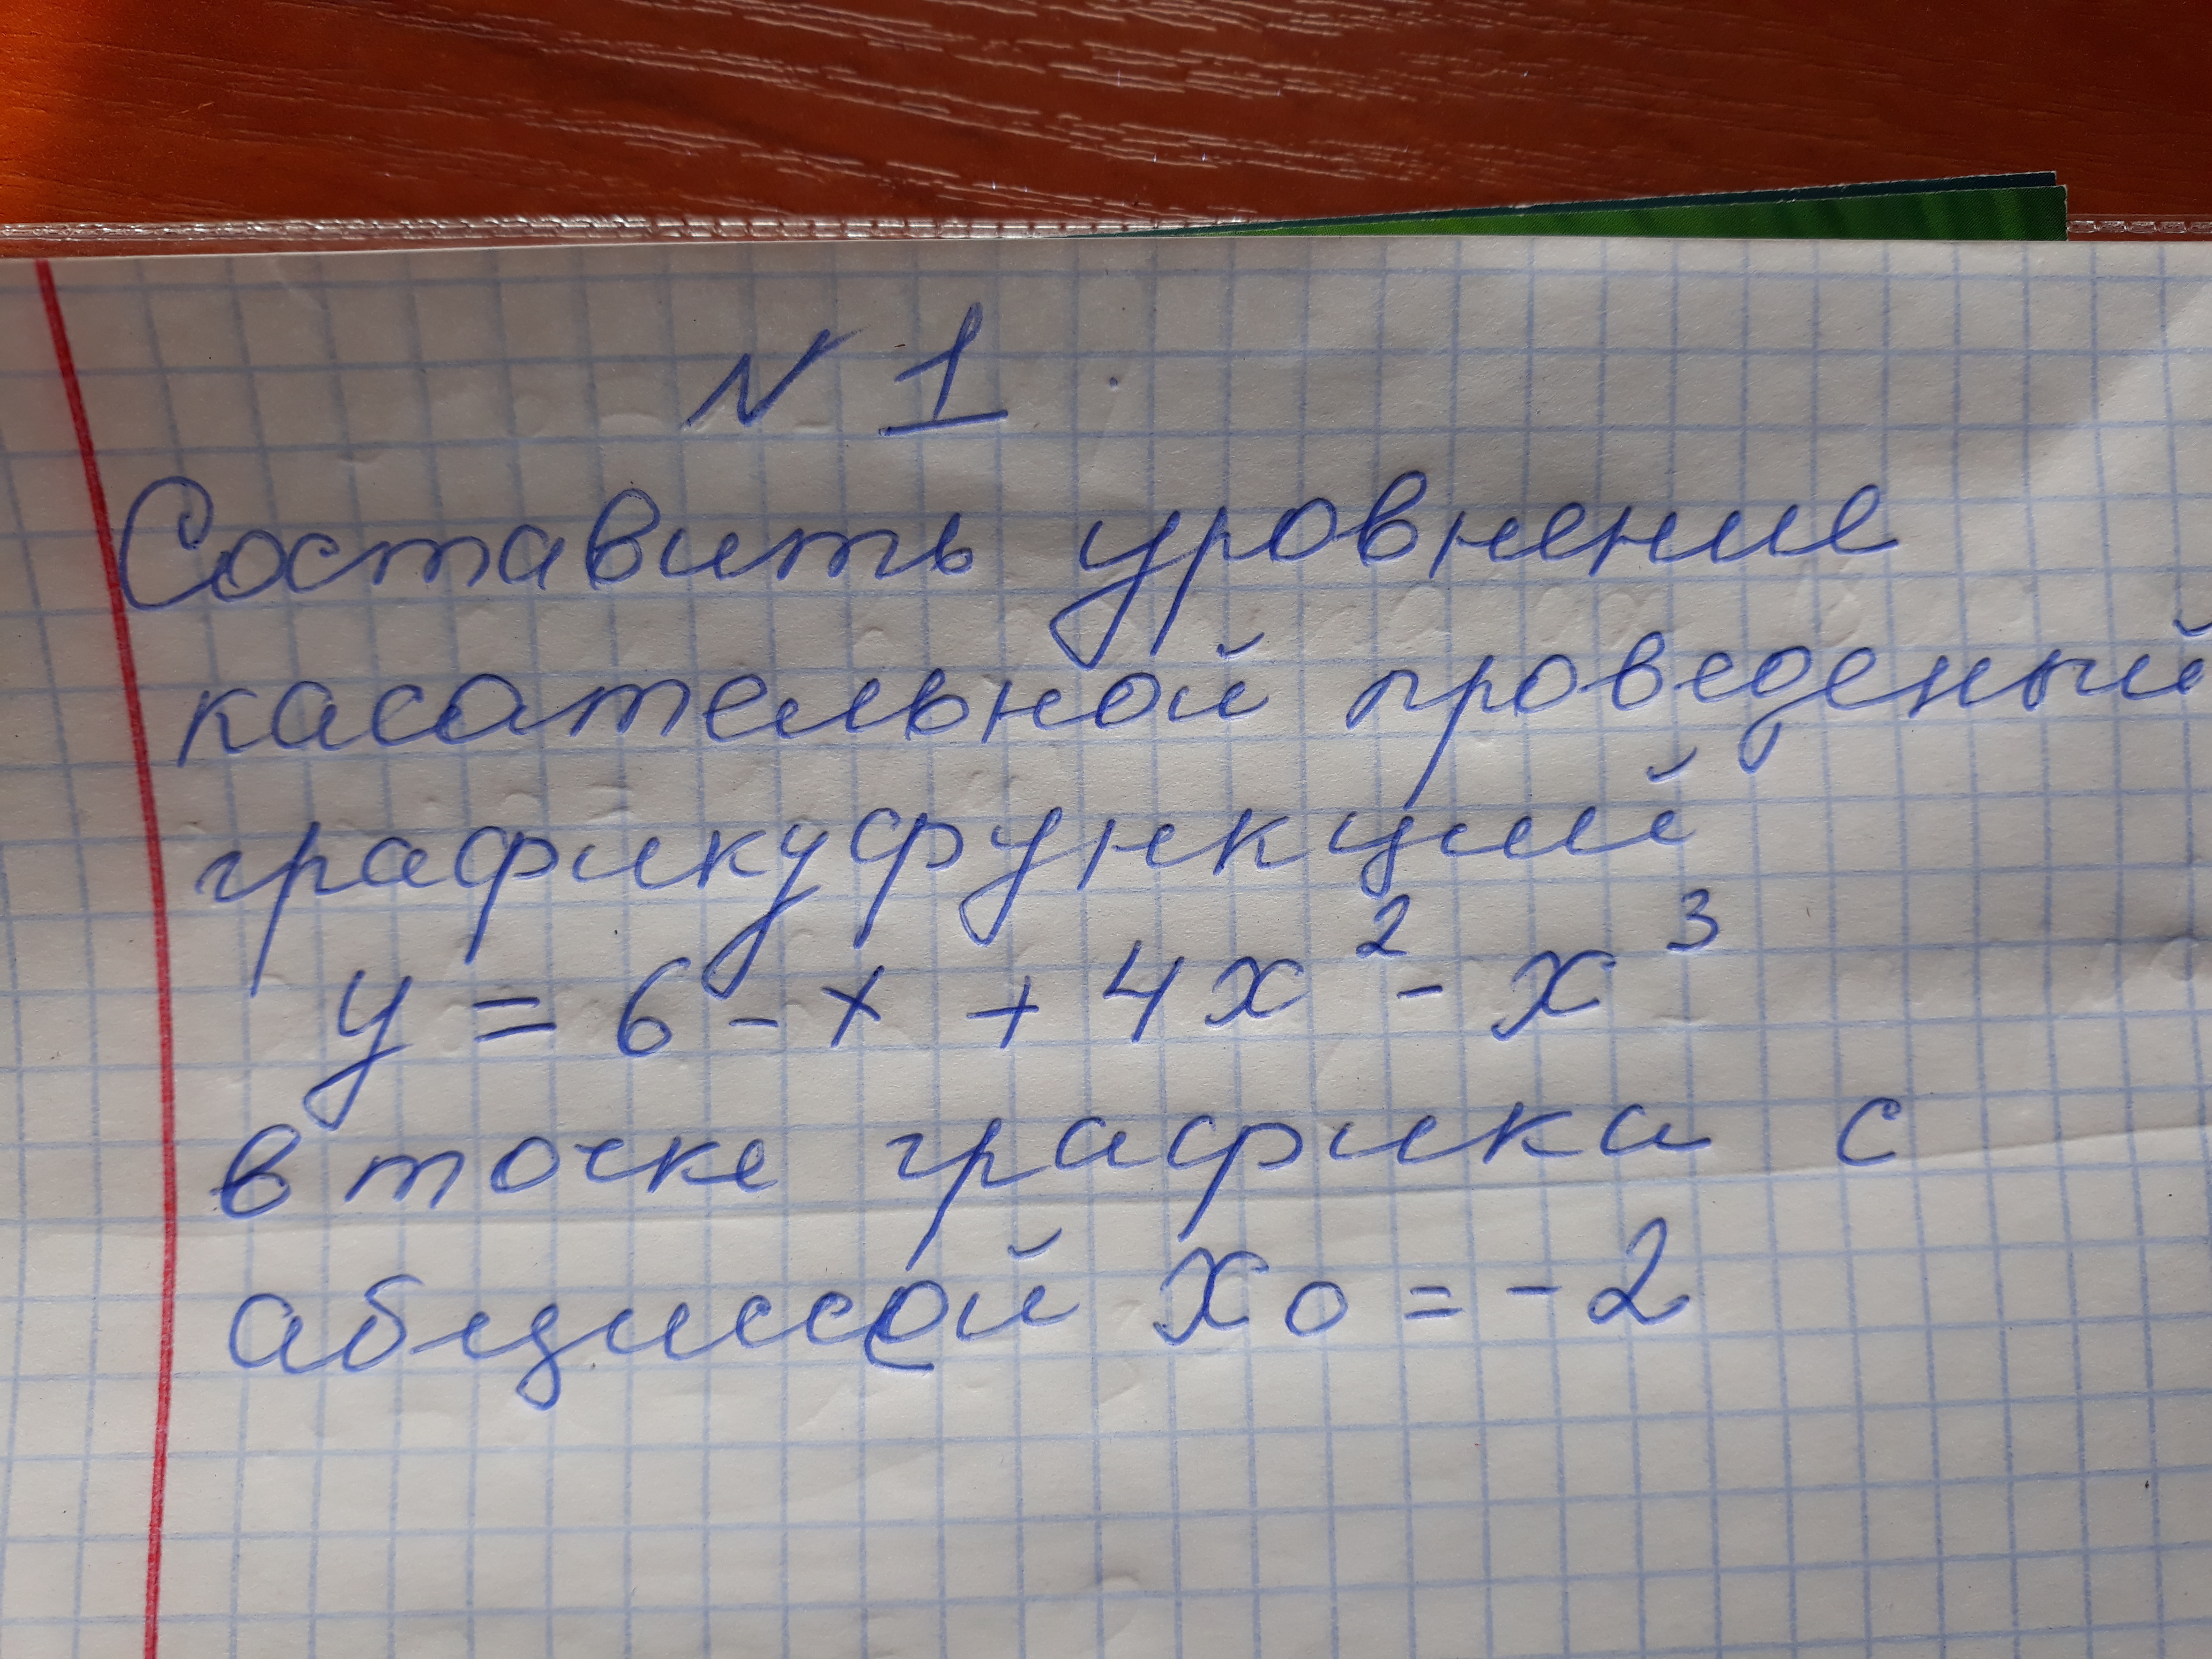 N 1
Составить уровнение
касательной проведеный
графику функций
y = 6 - x + 4x² - x³
в точке графика с
абциссой x₀ = -2